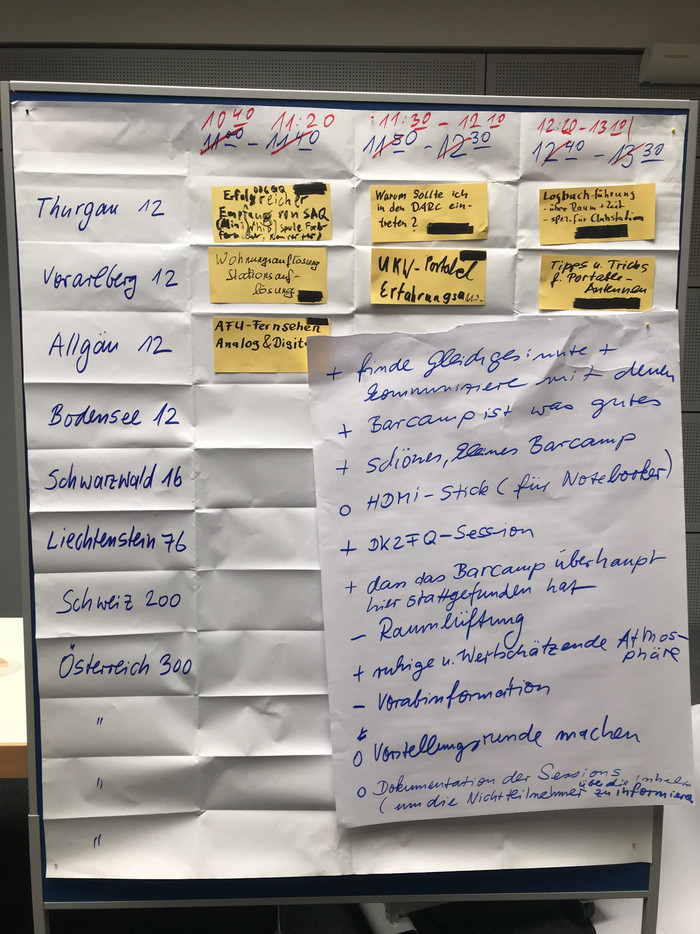 10 40 11:20
11 00 - 11 40
11:30 - 12 10
11 50 - 12 30
12:20 - 13 10
12 40 - 13 30
Thurgau 12
Erfolgreicher
Empfang von SAQ
(Mini
Warum sollte ich
in den DARC ein-
treten?
Logbuchführung
- über Raum + Zeit
- spez. für Clubstation
Vorarlberg 12
Wohnungsauflösung
Stationsauf-
lösung
UKW-Portabel
Erfahrungsau..
Tipps u. Tricks
f. Portabel-
Antennen
Allgäu 12
AFU-Fernsehen
Analog & Digit
Bodensee 12
Schwarzwald 16
Liechtenstein 76
Schweiz 200
Österreich 300
"
"
"
+ finde Gleichgesinnte +
kommuniziere mit denen
+ Barcamp ist was gutes
+ schönes, kleines Barcamp
o HDMI-Stick (für Notebooker)
+ DK2FQ-Session
+ dass das Barcamp überhaupt
hier stattgefunden hat
- Raumlüftung
+ ruhige u. Wertschätzende Atmos-
phäre
- Vorabinformation
o Vorstellungsrunde machen
o Dokumentation der Sessions
über die Inhalte
(um die Nichtteilnehmer zu informieren